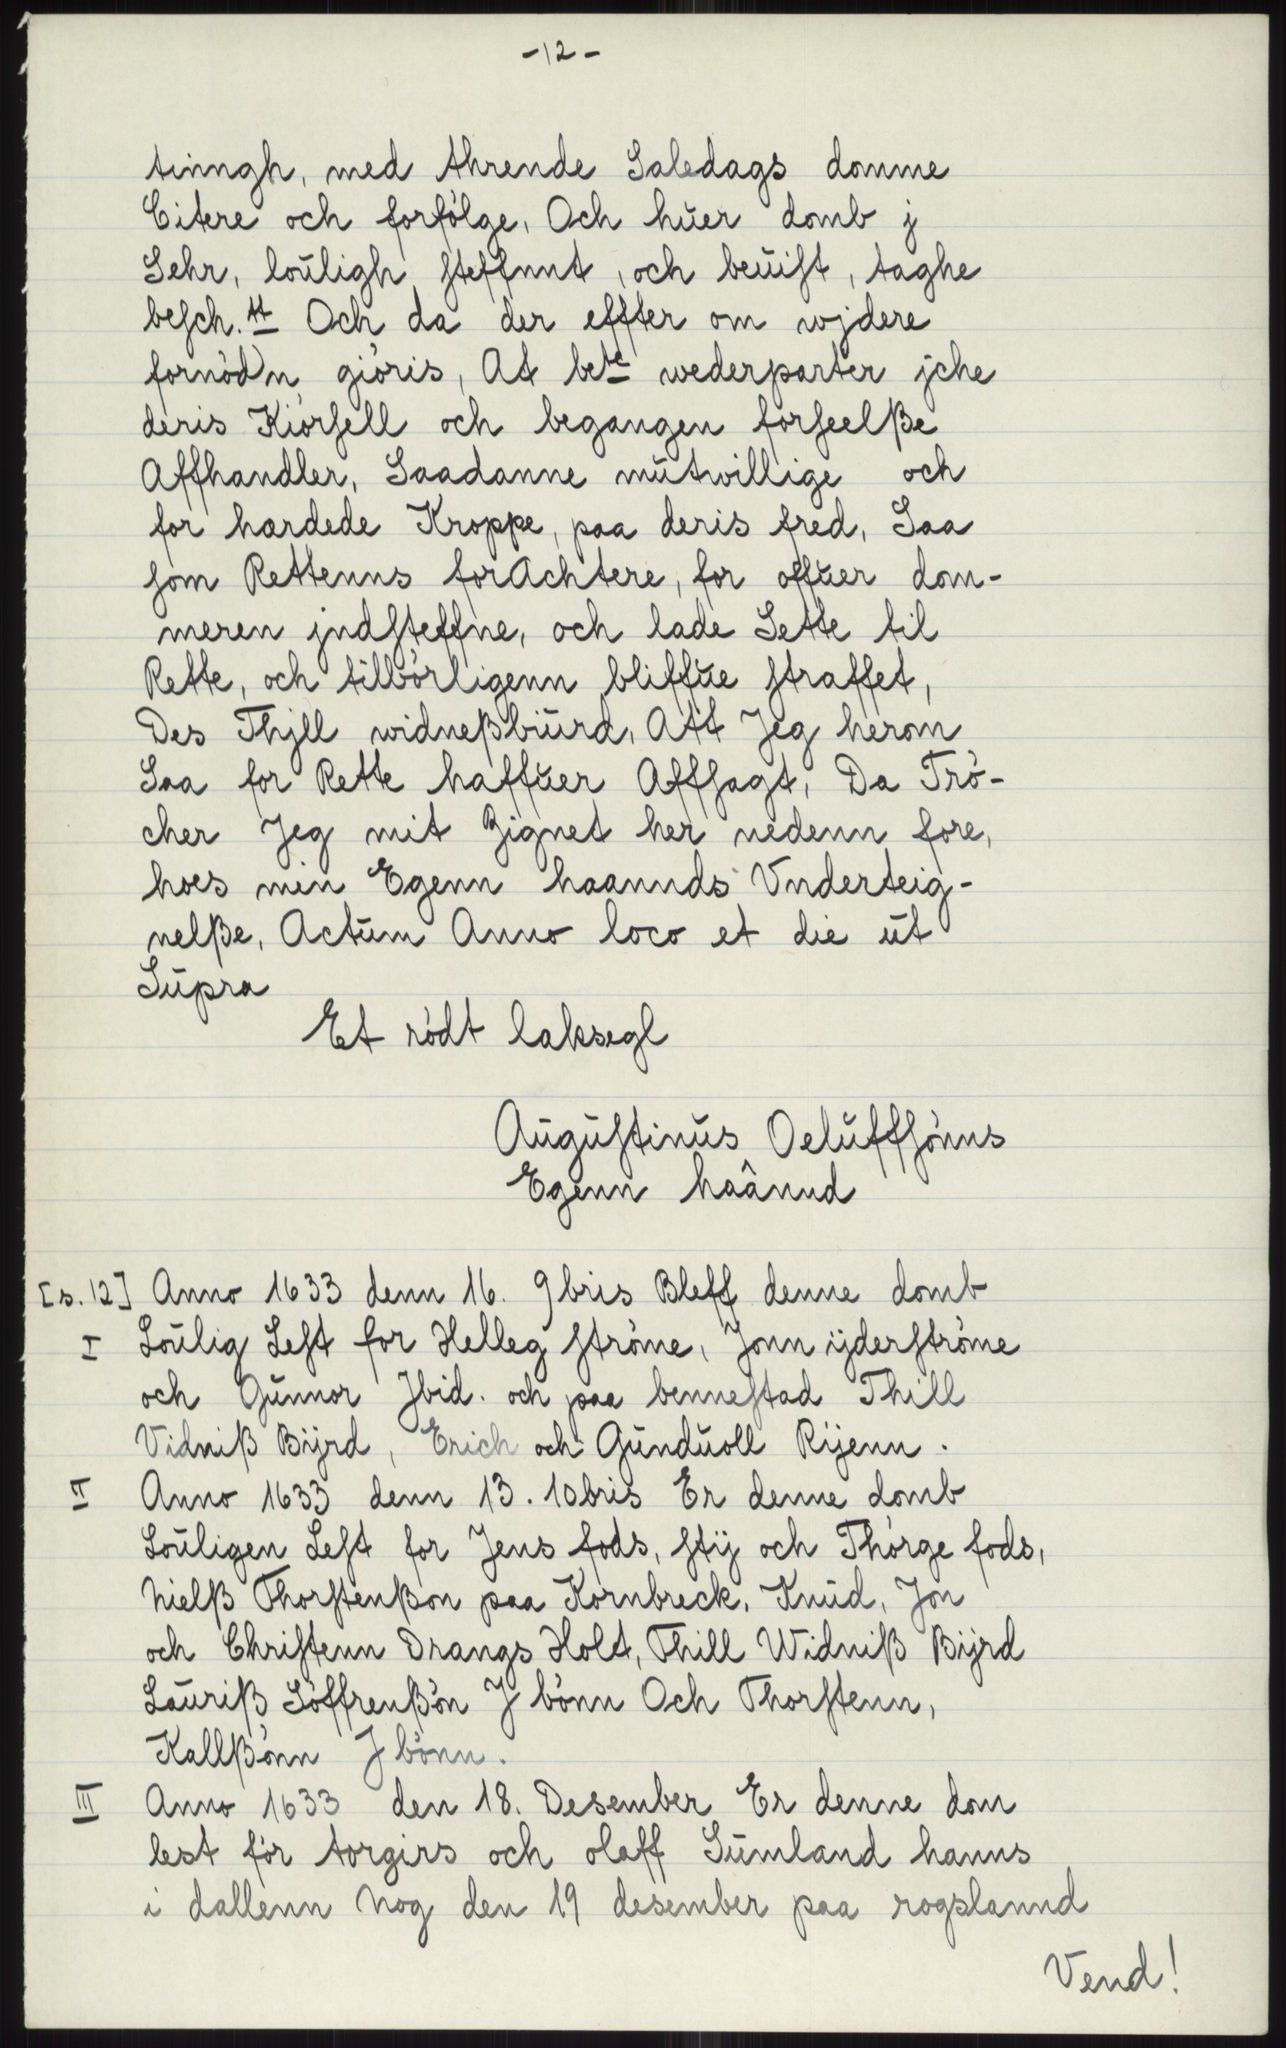 -12-
tinngh, med thrende Saledags domme
Citere och forfölge, Och huer domb j
Sehr, louligh steffnnt, och beuist, taghe
besch.tt Och da der effter om wjdere
fornödn giöris, At bete wederparter jche
deris Kiörsell och begangen forseelße
Affhandler, Saadanne mutwillige och
for hardede Kroppe, paa deris fred, Saa
som Rettenns forAchtere, for offuer dom-
meren jndsteffne, och lade Sette til
Rette, och tilbörligenn bliffue straffet,
Des Thjll widneßbiurd, Att Jeg herom
Saa for Rette haffuer Affsagt, Da Trö-
cher Jeg mit Zignet her nedenn fore,
hoes min Egenn haannds Vnderteig-
nelße, Actum Anno loco et die ut
Supra
Et rödt laksegl
Augustinus Oeluffsönns
Egenn haânnd
[s. 12] Anno 1633 denn 16. 9bris Bleff denne domb
I Loulig Lest for Helleg ströme, Jonn ijderströme
och Gunnor Jbid. och paa bennestad Thill
Vidniß Bijrd, Erich och Gunduoll Rijenn.
II Anno 1633 denn 13. 10bris Er denne domb
Louligen Lest for Jens fods, stij och Thörge fods,
Nielß Thorstenßon paa Kornbreck, Knud, Jon
och Christenn Drangs Holt, Thill Widniß Bijrd
Lauriß Söffrenßön J bönn Och Thorstenn,
Kallßönn J bönn.
III Anno 1633 den 18. Desember Er denne dom
lest för torgirs och olaff Sumland hanns
i dallenn Nog den 19 desember paa rogslannd
Vend!